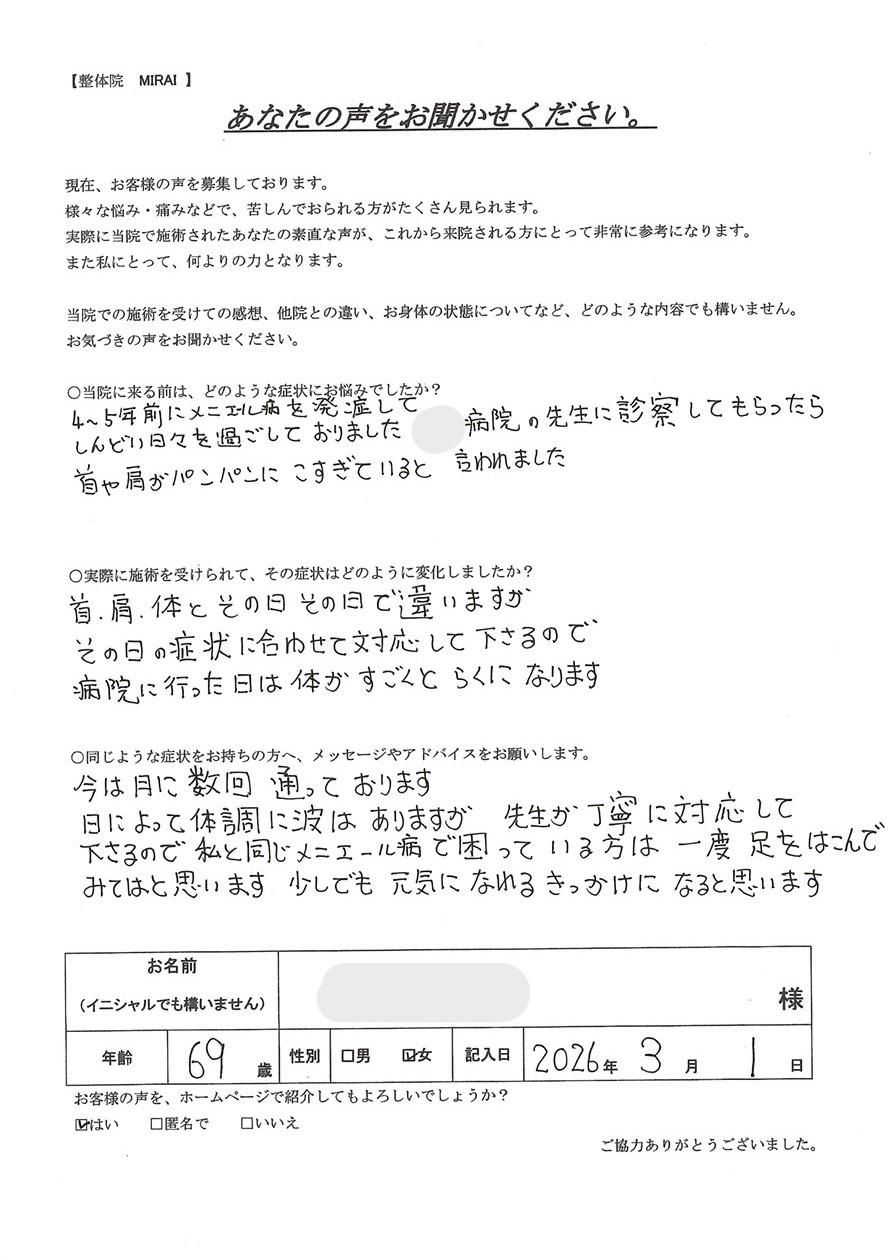 【整体院　MIRAI 】
あなたの声をお聞かせください。
現在、お客様の声を募集しております。
様々な悩み・痛みなどで、苦しんでおられる方がたくさん見られます。
実際に当院で施術されたあなたの素直な声が、これから来院される方にとって非常に参考になります。
また私にとって、何よりの力となります。
当院での施術を受けての感想、他院との違い、お身体の状態についてなど、どのような内容でも構いません。
お気づきの声をお聞かせください。
○当院に来る前は、どのような症状にお悩みでしたか？
4～5年前にメニエル病を発症して
しんどい日々を過ごして おりました 病院の先生に診察してもらったら
首や肩がパンパンに こすぎていると 言われました
○実際に施術を受けられて、その症状はどのように変化しましたか？
首.肩.体と その日 その日で違いますが
その日の症状に合わせて対応して下さるので
病院に行った日は 体が すごくと らくに なります
○同じような症状をお持ちの方へ、メッセージやアドバイスをお願いします。
今は月に 数回 通って おります
日によって体調に波は ありますが 先生が 丁寧に対応して
下さるので 私と同じメニエール病で困っている方は 一度 足をはこんで
みてはと思います 少しでも 元気に なれる きっかけに なると思います
お名前
（イニシャルでも構いません） 様
年齢 69 歳 性別 □男 ☑女 記入日 2026年 3 月 1 日
お客様の声を、ホームページで紹介してもよろしいでしょうか？
☑はい □匿名で □いいえ
ご協力ありがとうございました。